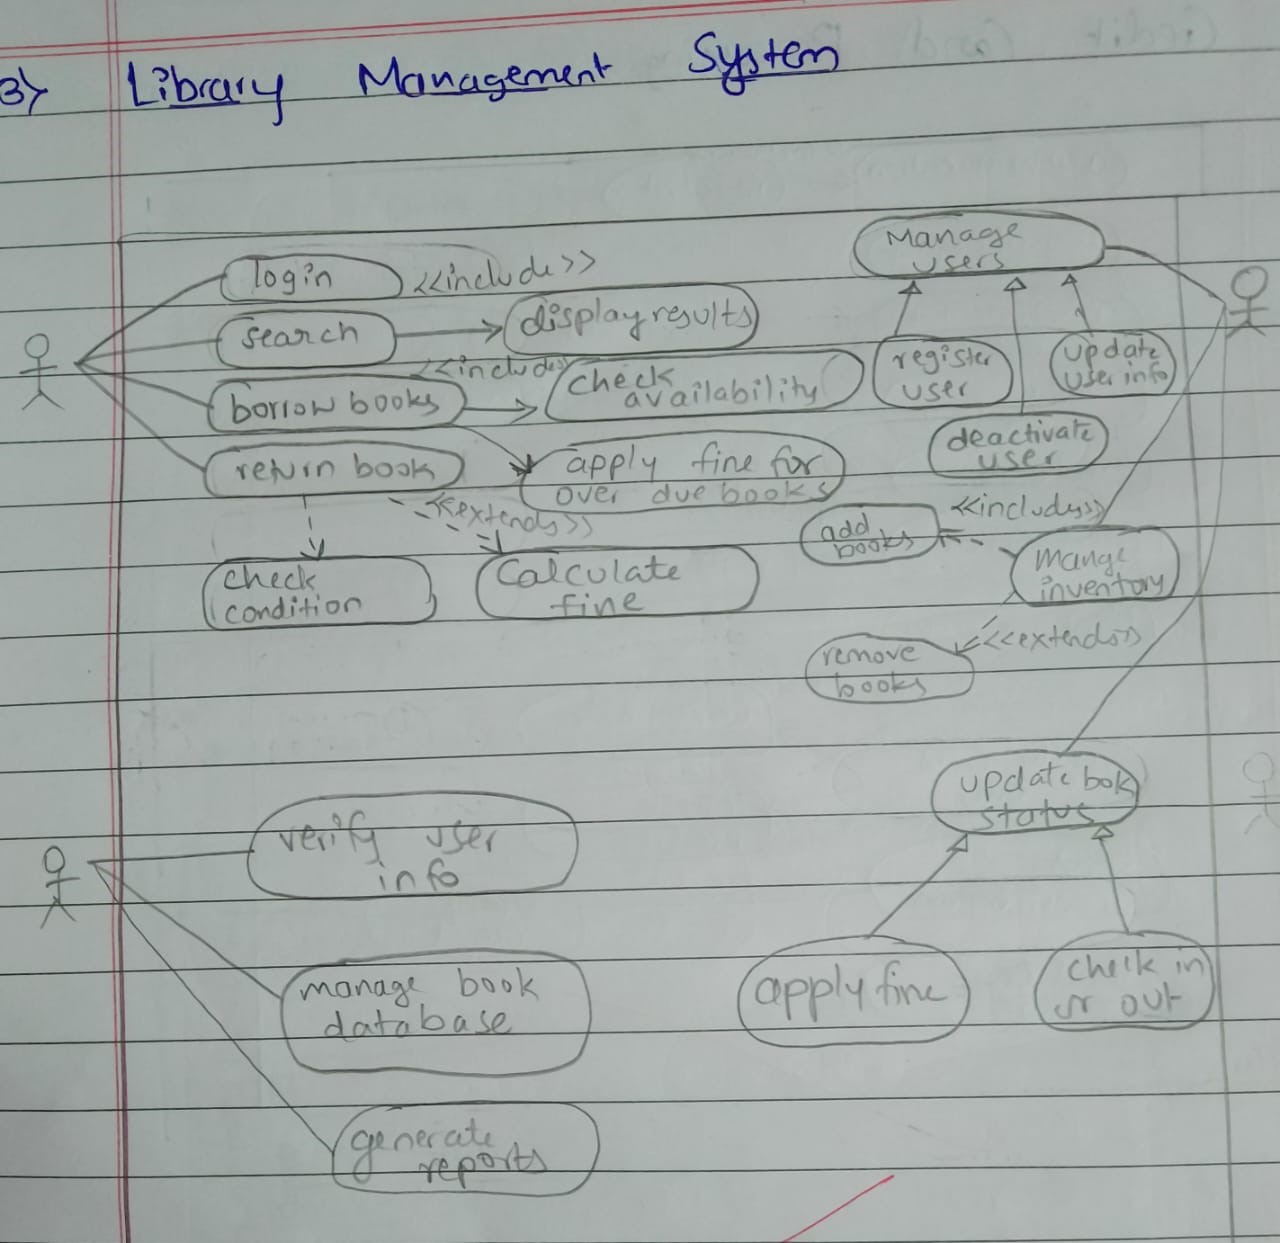 3) Library Management System
login
<<include>>
search
display results
<<include>>
borrow books
check
availability
return book
apply fine for
over due books
<<extends>>
check
condition
Calculate
fine
Manage
users
register
user
update
user info
deactivate
user
<<includes>>
add
books
mange
inventory
<<extends>>
remove
books
update bok
status
apply fine
check in
or out
verify user
info
manage book
database
generate
reports